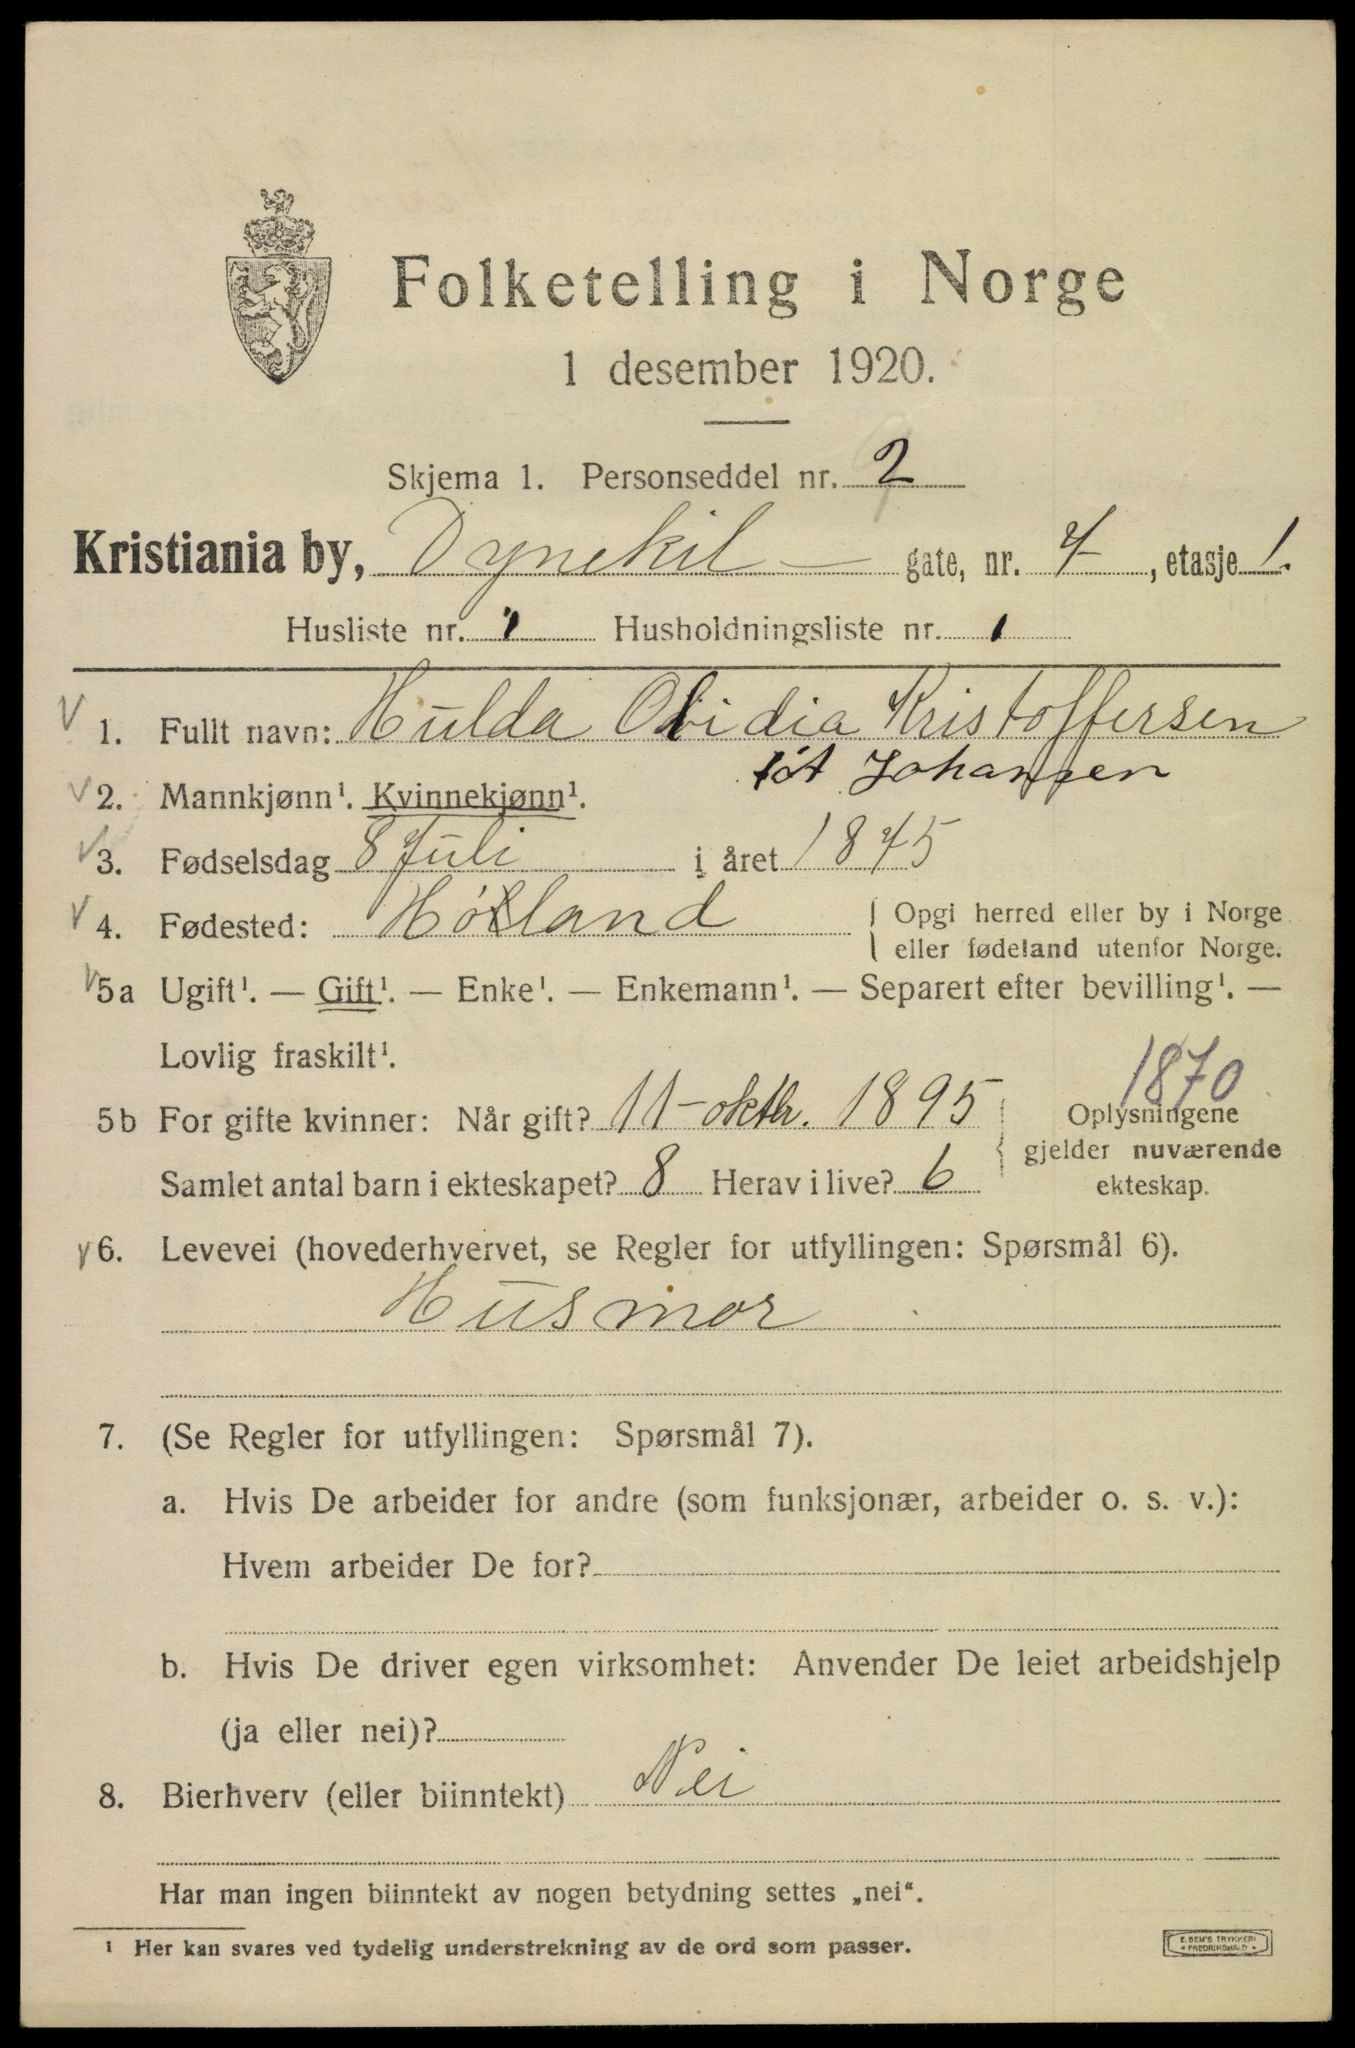 Folketelling i Norge
1 desember 1920.
Skjema 1. Personseddel nr. 2
Kristiania by, Dynekil — gate, nr. 7, etasje 1.
Husliste nr. 1 Husholdningsliste nr. 1
1. Fullt navn: Hulda Olidia Kristoffersen
føt Johansen
2. Mannkjønn¹. Kvinnekjønn¹.
3. Fødselsdag 8 Juli i året 1875
4. Fødested: Høland { Opgi herred eller by i Norge
eller fødeland utenfor Norge.
5a Ugift¹. — Gift¹. — Enke¹. — Enkemann¹. — Separert efter bevilling¹. —
Lovlig fraskilt¹.
1870
5b For gifte kvinner: Når gift? 11-oktbr. 1895 Oplysningene
gjelder nuværende
Samlet antal barn i ekteskapet? 8 Herav i live? 6 ekteskap.
6. Levevei (hovederhvervet, se Regler for utfyllingen: Spørsmål 6).
Husmor
7. (Se Regler for utfyllingen: Spørsmål 7).
a. Hvis De arbeider for andre (som funksjonær, arbeider o. s. v.):
Hvem arbeider De for?
b. Hvis De driver egen virksomhet: Anvender De leiet arbeidshjelp
(ja eller nei)?
8. Bierhverv (eller biinntekt) Nei
Har man ingen biinntekt av nogen betydning settes „nei“.
¹ Her kan svares ved tydelig understrekning av de ord som passer.
E. SEM'S TRYKKERI
* FREDRIKSHALD *